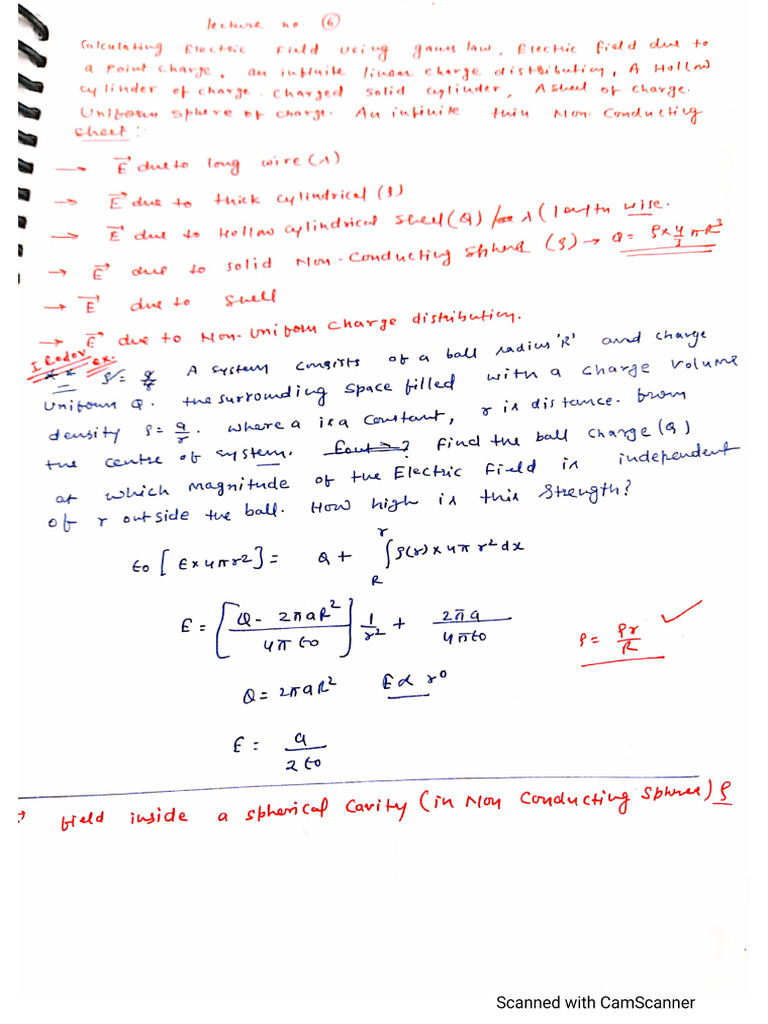 lecture no. ⑥
Calculating Electric Field using gauss law, Electric field due to
a Point charge, an infinite linear charge distribution, A Hollow
cylinder of charge. Charged solid cylinder, A shell of charge.
Uniform sphere of charge. An infinite thin Non-Conducting
sheet:
→ E⃗ due to long wire (λ)
→ E⃗ due to thick cylindrical (ρ)
→ E⃗ due to Hollow cylindrical shell (Q) / λ (length wise.
→ E⃗ due to solid Non-Conducting sphere (ρ) → Q = ρ × 4/3 πR³
→ E⃗ due to shell
→ E⃗ due to Non-Uniform Charge distribution.
I Rodov ex.
** ρ = a/r A system consists of a ball radius 'R' and charge
Uniform Q. the surrounding space filled with a charge volume
density ρ = a/r. where a is a constant, r is distance from
the centre of system. Find the ball charge (Q)
at which magnitude of the Electric Field is independent
of r outside the ball. How high is this strength?
ε₀ [E × 4πr²] = Q + ∫_R^r ρ(r) × 4π r² dx
E = [(Q - 2πaR²)/(4π ε₀)] 1/r² + 2πa/(4πε₀)
ρ = ρr/R ✓
Q = 2πaR² E ∝ r⁰
E = a/(2ε₀)
→ field inside a spherical Cavity (in Non Conducting sphere) ρ
Scanned with CamScanner